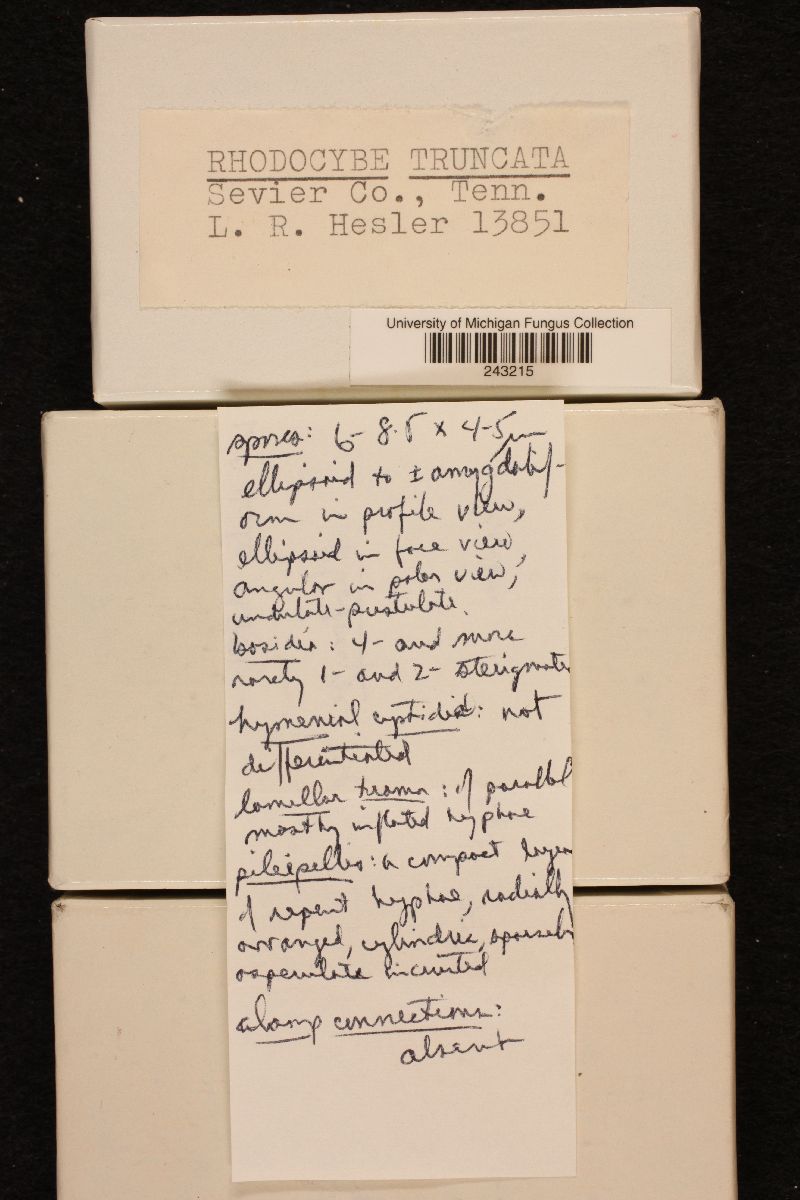 RHODOCYBE TRUNCATA
Sevier Co., Tenn.
L. R. Hesler 13851
University of Michigan Fungus Collection
243215
spores: 6-8.5 x 4-5 µm
ellipsoid to ± amygdalif-
orm in profile view,
ellipsoid in face view,
angular in polar view,
undulate-pustulate.
basidia: 4- and more
rarely 1- and 2- sterigmate
hymenial cystidia: not
differentiated
lamellar trama: of parallel
mostly inflated hyphae
pileipellis: a compact layer
of repent hyphae, radially
arranged, cylindric, sparsely
asperulate incrusted
clamp connections:
absent